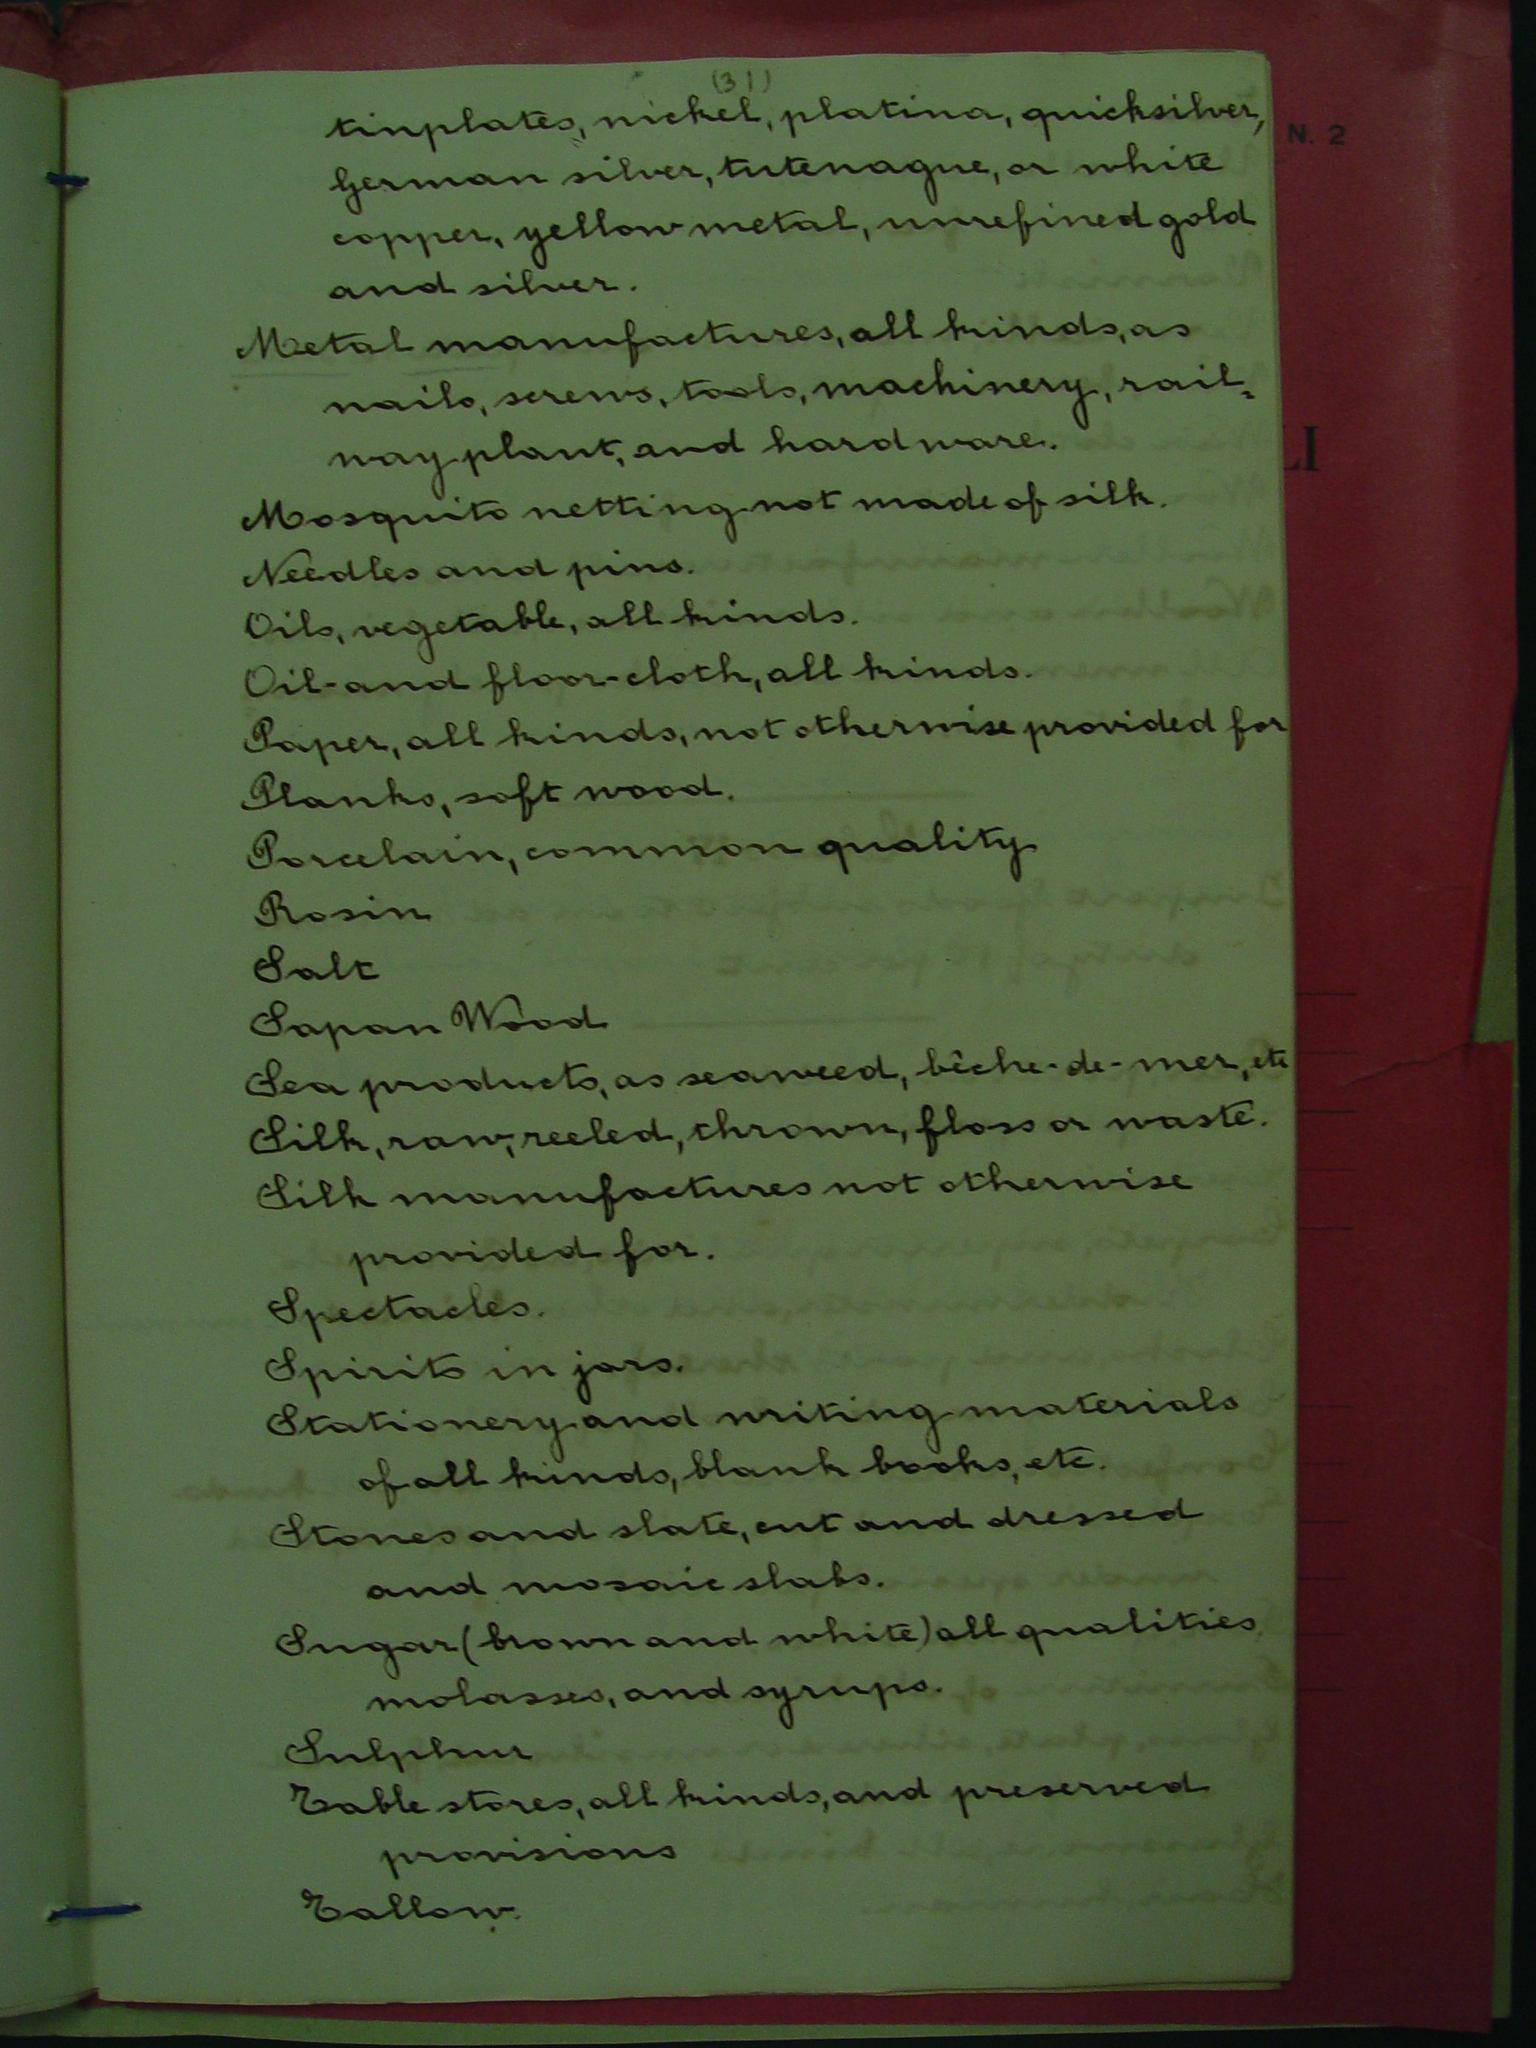 (31)
tinplates, nickel, platina, quicksilver,
German silver, tutenague, or white
copper, yellow metal, unrefined gold
and silver.
Metal manufactures, all kinds, as
nails, screws, tools, machinery, rail-
way plant, and hardware.
Mosquito netting not made of silk.
Needles and pins.
Oils, vegetable, all kinds.
Oil-and floor-cloth, all kinds.
Paper, all kinds, not otherwise provided for
Planks, soft wood.
Porcelain, common quality
Rosin
Salt
Sapan Wood
Sea products, as seaweed, bêche-de-mer, etc
Silk, raw, reeled, thrown, floss or waste.
Silk manufactures not otherwise
provided for.
Spectacles.
Spirits in jars.
Stationery and writing materials
of all kinds, blank books, etc.
Stones and slate, cut and dressed
and mosaic slabs.
Sugar (brown and white) all qualities,
molasses, and syrups.
Sulphur
Table stores, all kinds, and preserved
provisions
Tallow.
N. 2
LI